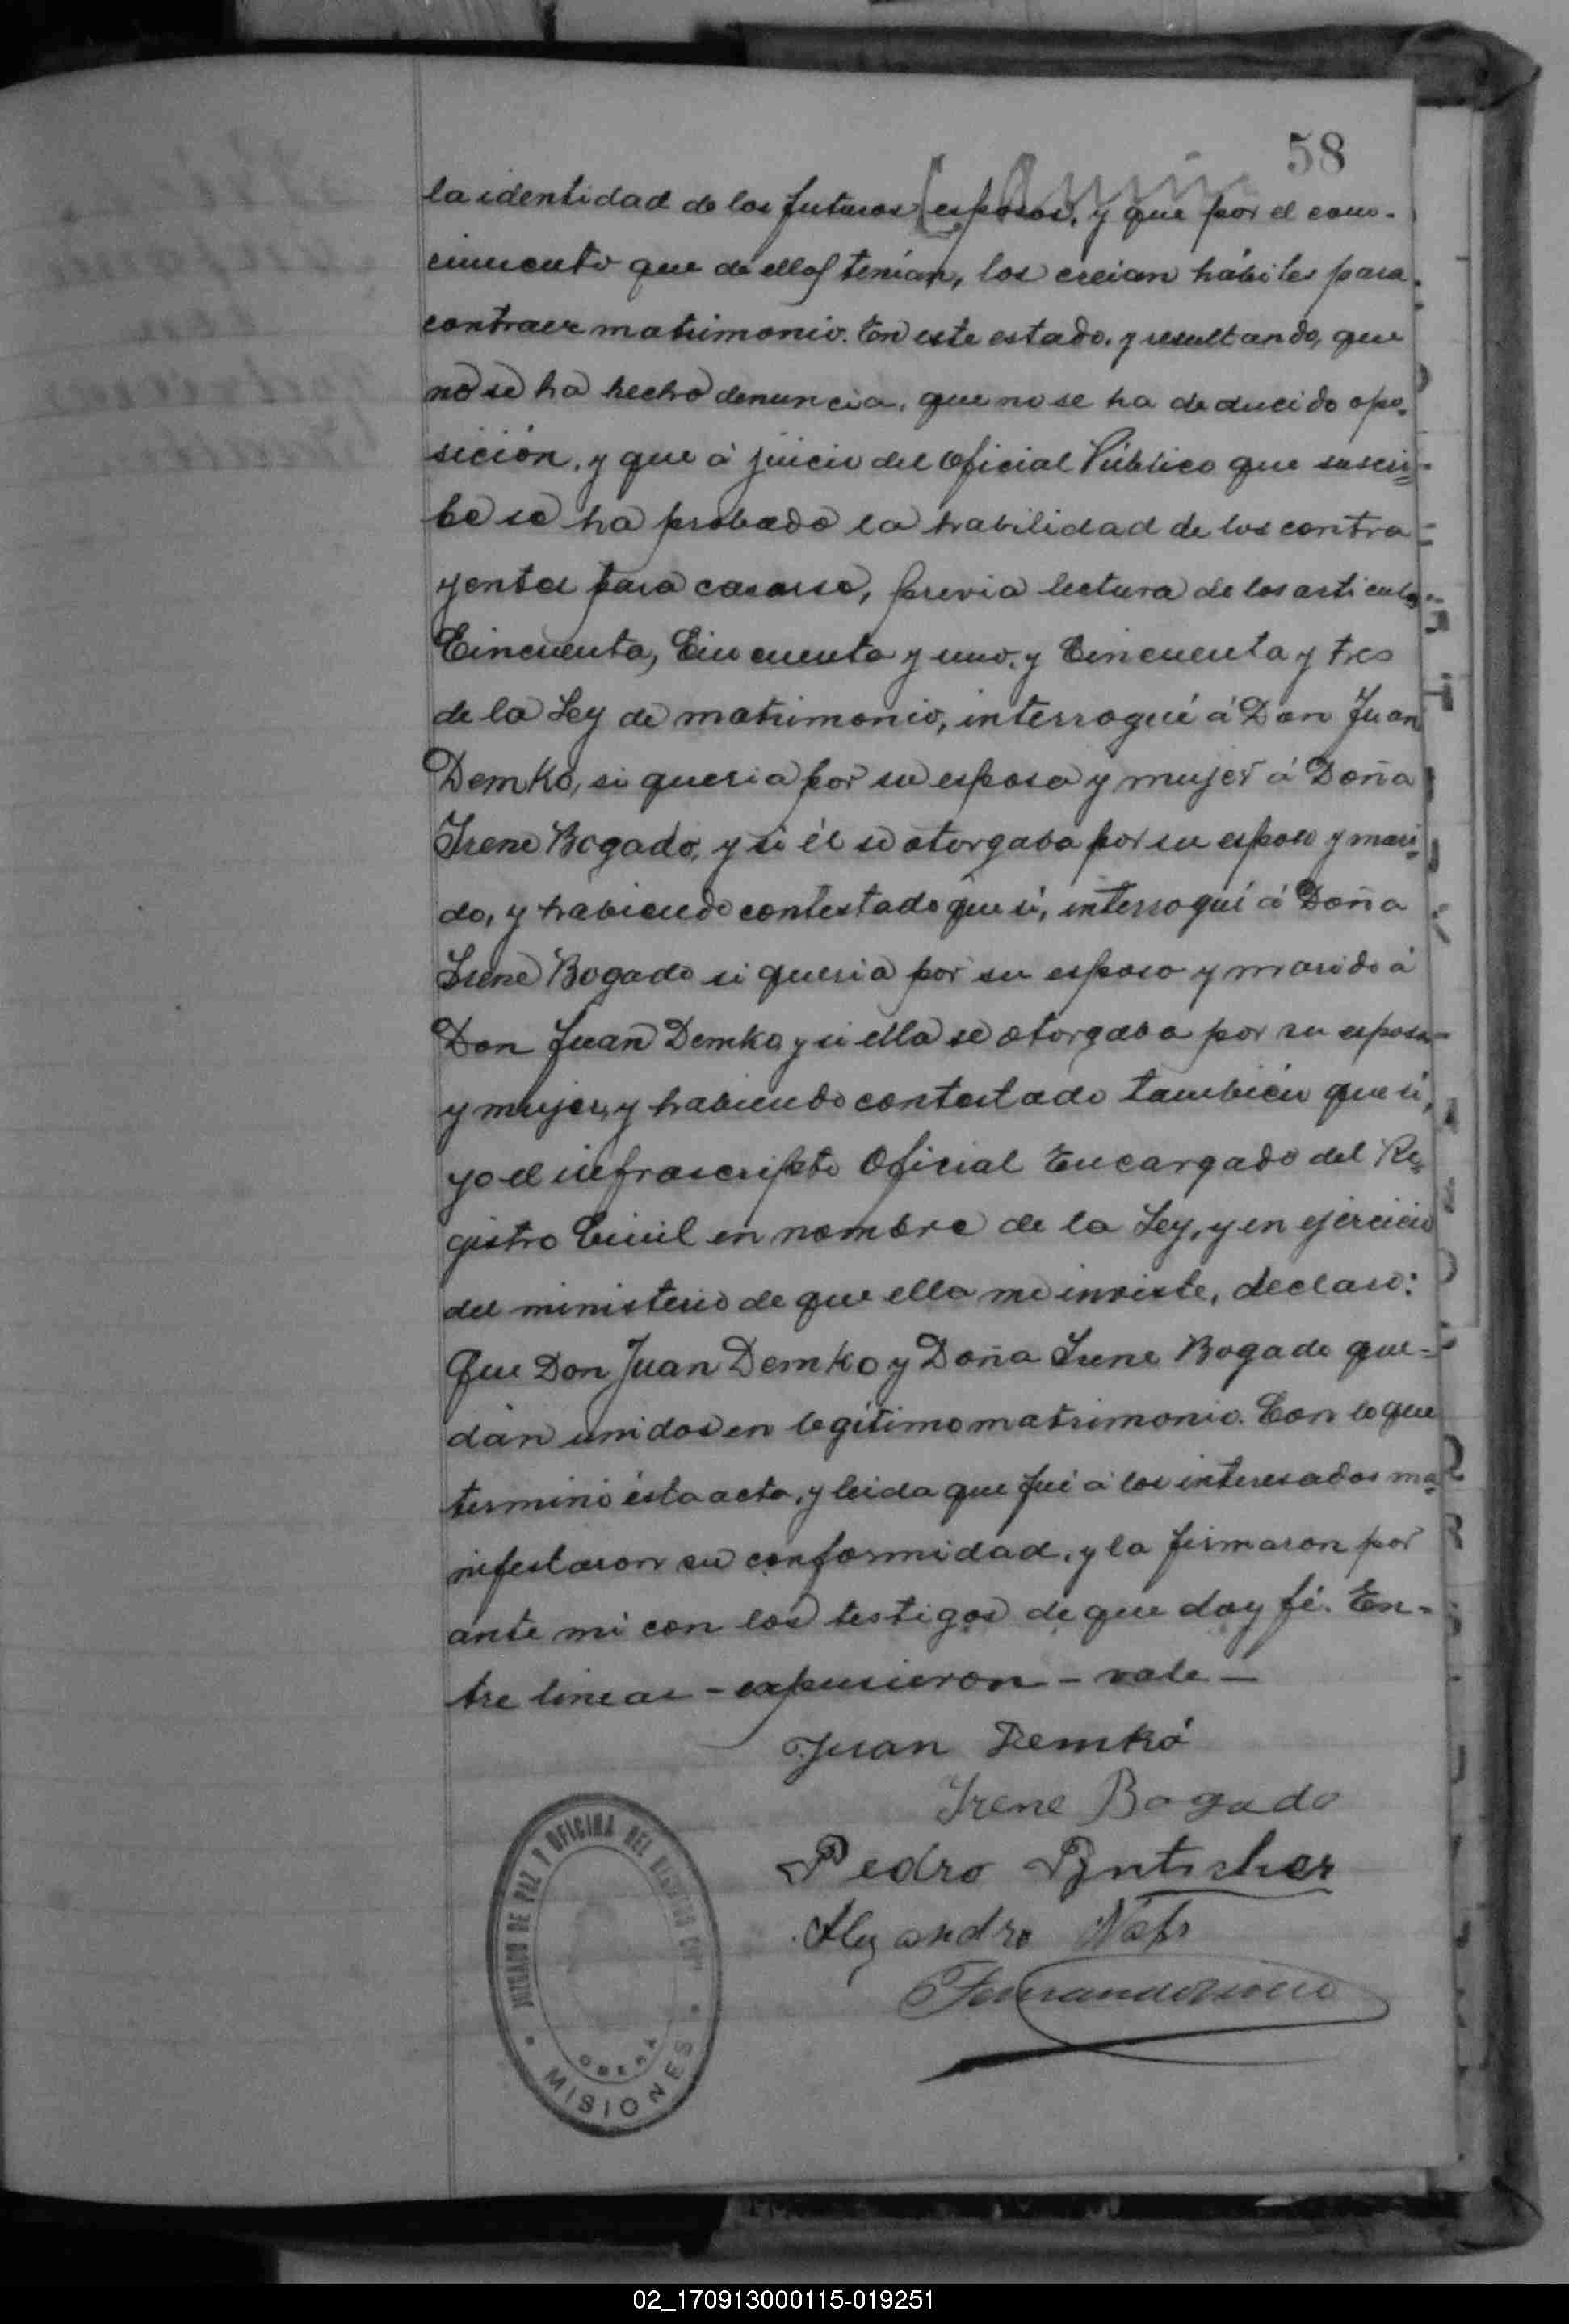 58
la identidad de los futuros esposos, y que por el cono-
cimiento que de ellos tenían, los creian hábiles para
contraer matrimonio. En este estado, y resultando, que
no se ha hecho denuncia, que no se ha deducido opo-
sición, y que á juicio del Oficial Público que suscri-
be se ha probado la habilidad de los contra
yentes para casarse, previa lectura de los articulos
Cincuenta, Cincuenta y uno, y Cincuenta y tres
de la Ley de matrimonio, interrogué á Don Juan
Demko, si queria por su esposa y mujer á Doña
Irene Bogado, y si él se otorgaba por su esposo y mari-
do, y habiendo contestado que sí, interrogué á Doña
Irene Bogado si queria por su esposo y marido á
Don Juan Demko y si ella se otorgaba por su esposa
y mujer, y habiendo contestado también que sí,
yo el infrascripto Oficial Encargado del Re-
gistro Civil en nombre de la Ley, y en ejercicio
del ministerio de que ella me inviste, declaro:
Que Don Juan Demko y Doña Irene Bogado que-
dan unidos en legítimo matrimonio. Con lo que
terminó ésta acta, y leida que fué á los interesados ma-
nifestaron su conformidad, y la firmaron por
ante mí con los testigos de que doy fé. En-
tre lineas - expusieron - vale -
Juan Demkó
Irene Bogado
Pedro
Alejandro
JUZGADO DE PAZ Y OFICINA DEL REGISTRO CIVIL
OBERÁ
MISIONES
02_170913000115-019251